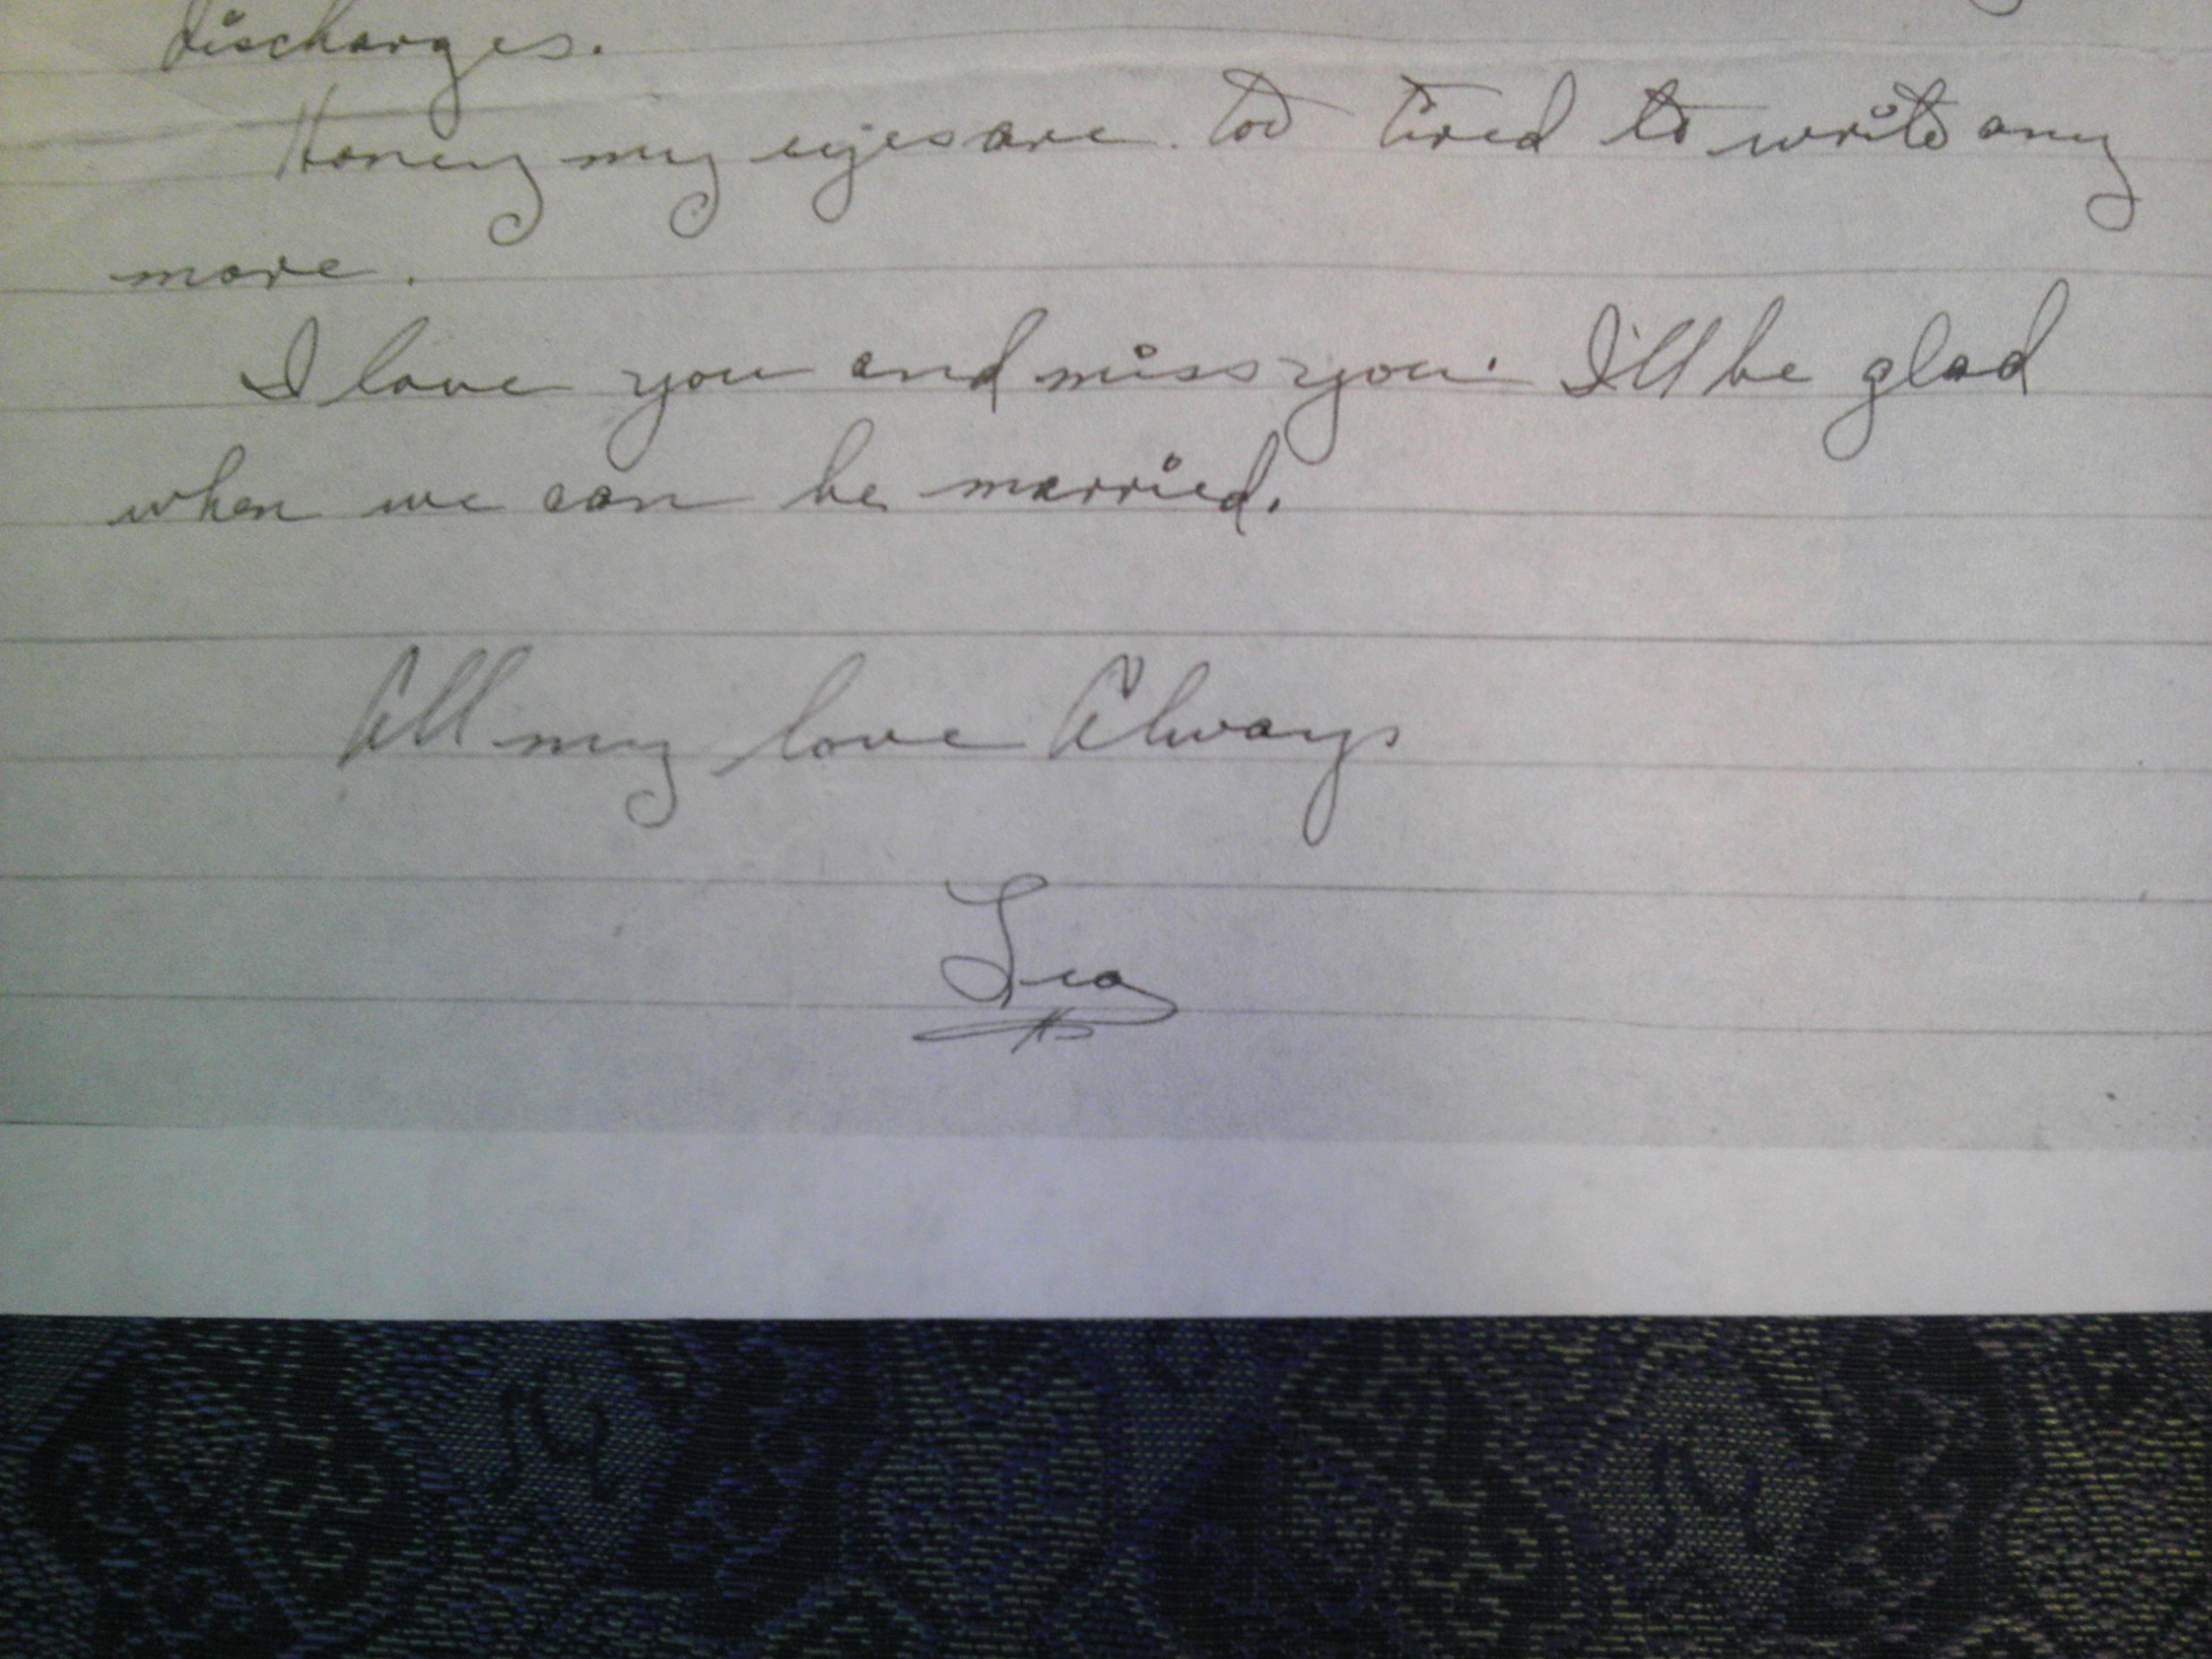 discharges.
Honey my eyes are too tired to write any
more.
I love you and miss you. I'll be glad
when we can be married.
All my love Always
Leo